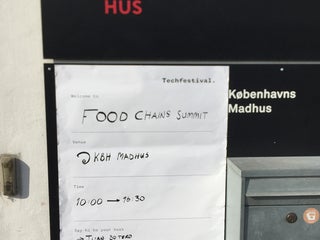 HUS
Techfestival.
Welcome to
FOOD CHAINS SUMMIT
Københavns
Madhus
Venue
KBH MADHUS
Time
10:00 → 16:30
Say hi to your host